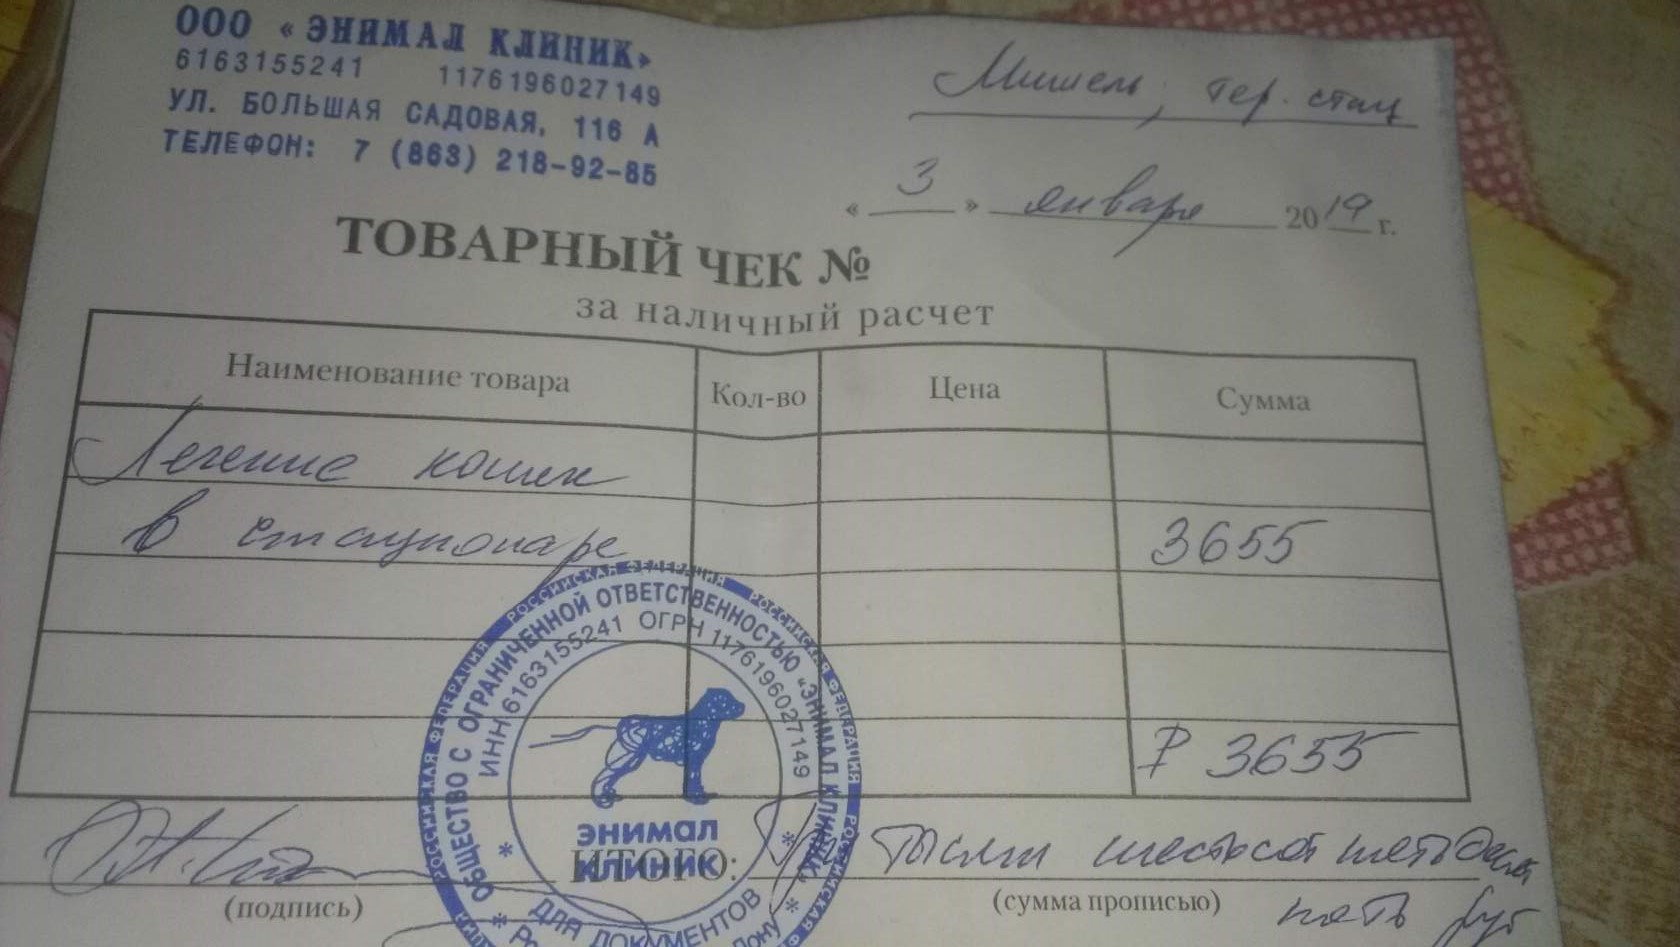 ООО «ЭНИМАЛ КЛИНИК»
6163155241 1176196027149
УЛ. БОЛЬШАЯ САДОВАЯ, 116 А
ТЕЛЕФОН: 7 (863) 218-92-85
Мишель, тер. стац
« 3 » января 2019 г.
ТОВАРНЫЙ ЧЕК №
за наличный расчет
Наименование товара Кол-во Цена Сумма
Лечение кошек
в стационаре 3655
₽ 3655
РОССИЙСКАЯ ФЕДЕРАЦИЯ РОССИЙСКАЯ ФЕДЕРАЦИЯ РОССИЙСКАЯ ФЕДЕРАЦИЯ
ОБЩЕСТВО С ОГРАНИЧЕННОЙ ОТВЕТСТВЕННОСТЬЮ «ЭНИМАЛ КЛИНИК»
ИНН 6163155241 ОГРН 1176196027149
ЭНИМАЛ
КЛИНИК
ДЛЯ ДОКУМЕНТОВ
ИТОГО: Три тысячи шестьсот пятьдесят
(подпись) (сумма прописью) пять руб